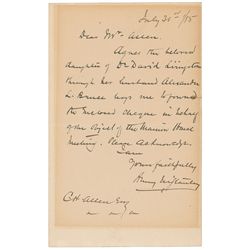 July 30th /85
Dear Mr. Allen.
Agnes the beloved
daughter of Dr David Livingstone
through her husband Alexander
L. Bruce begs me to forward
the enclosed cheque in behalf
of the object of the Mansion House
Meeting. Please Acknowledge.
I am
Yours faithfully
Henry M Stanley
C. H. Allen Esq